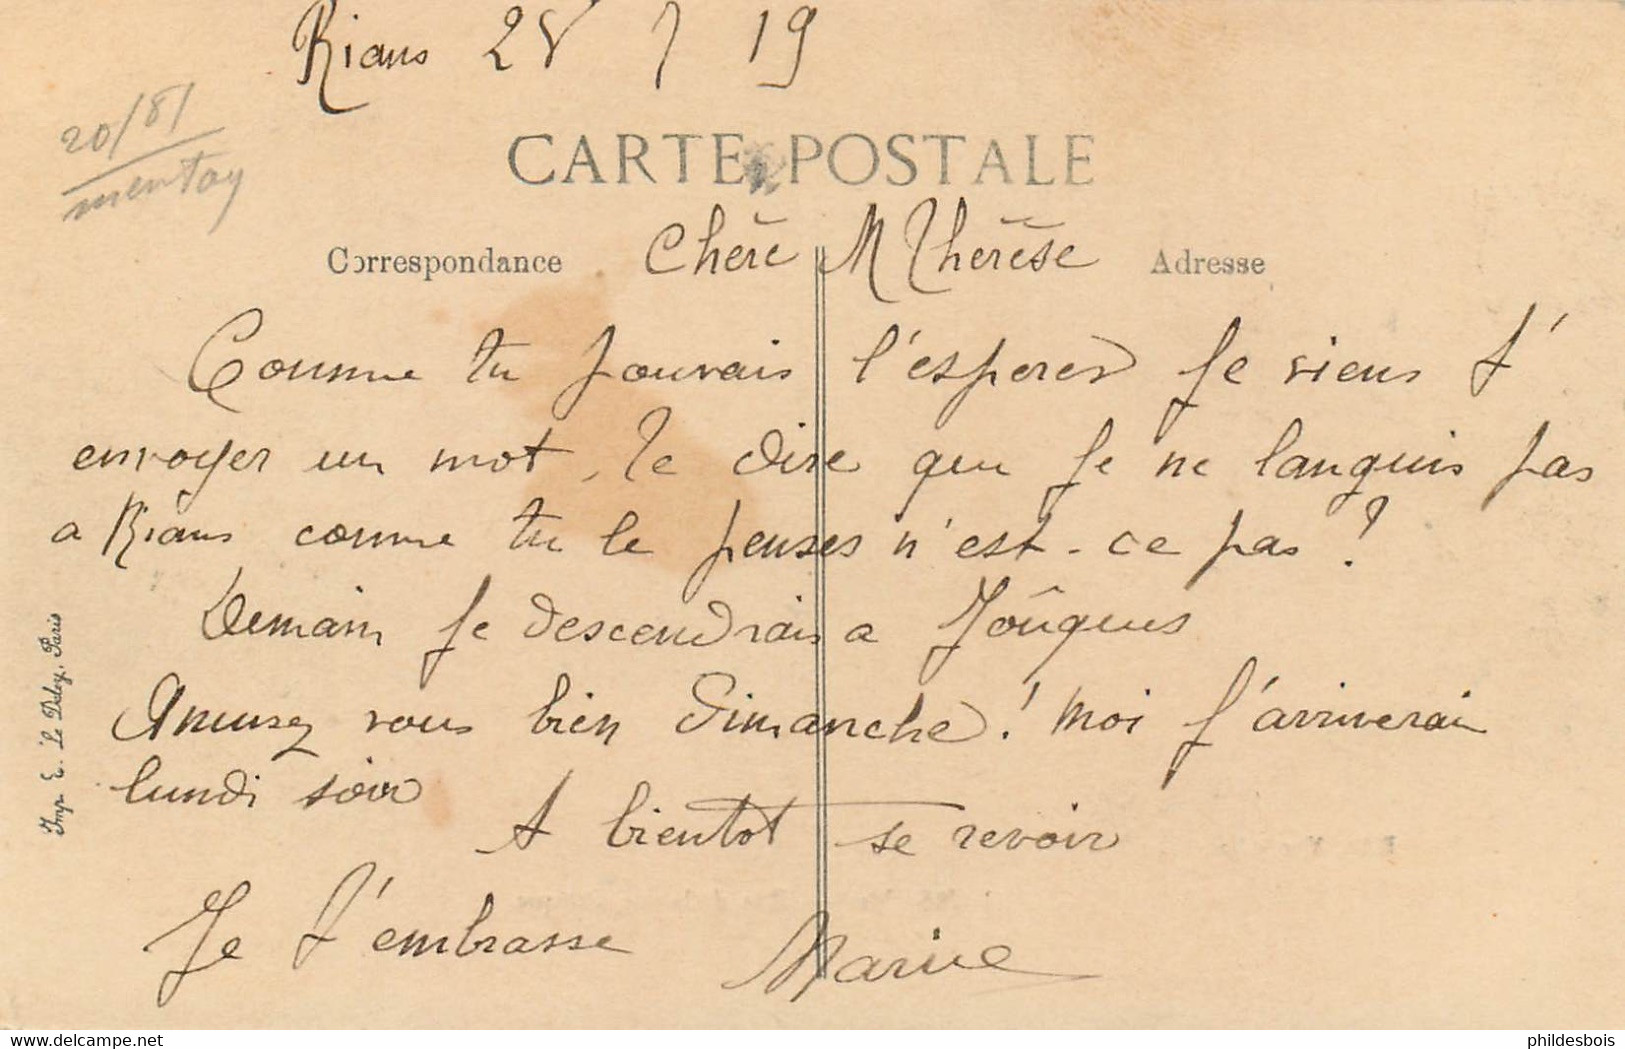 Rians 25 7 19
20/81
mentoy
CARTE POSTALE
Correspondance
Chère M Thérèse
Adresse
Comme tu pouvais l'esperer je viens t'
envoyer un mot, te dire que je ne languis pas
a Rians comme tu le penses n'est-ce pas ?
Demain je descendrais a Joûques
Amusez vous bien Dimanche ! Moi j'arriverai
lundi soir
A bientot se revoir
Je t'embrasse
Marie
Imp. E. Le Deley, Paris
www.delcampe.net
phildesbois